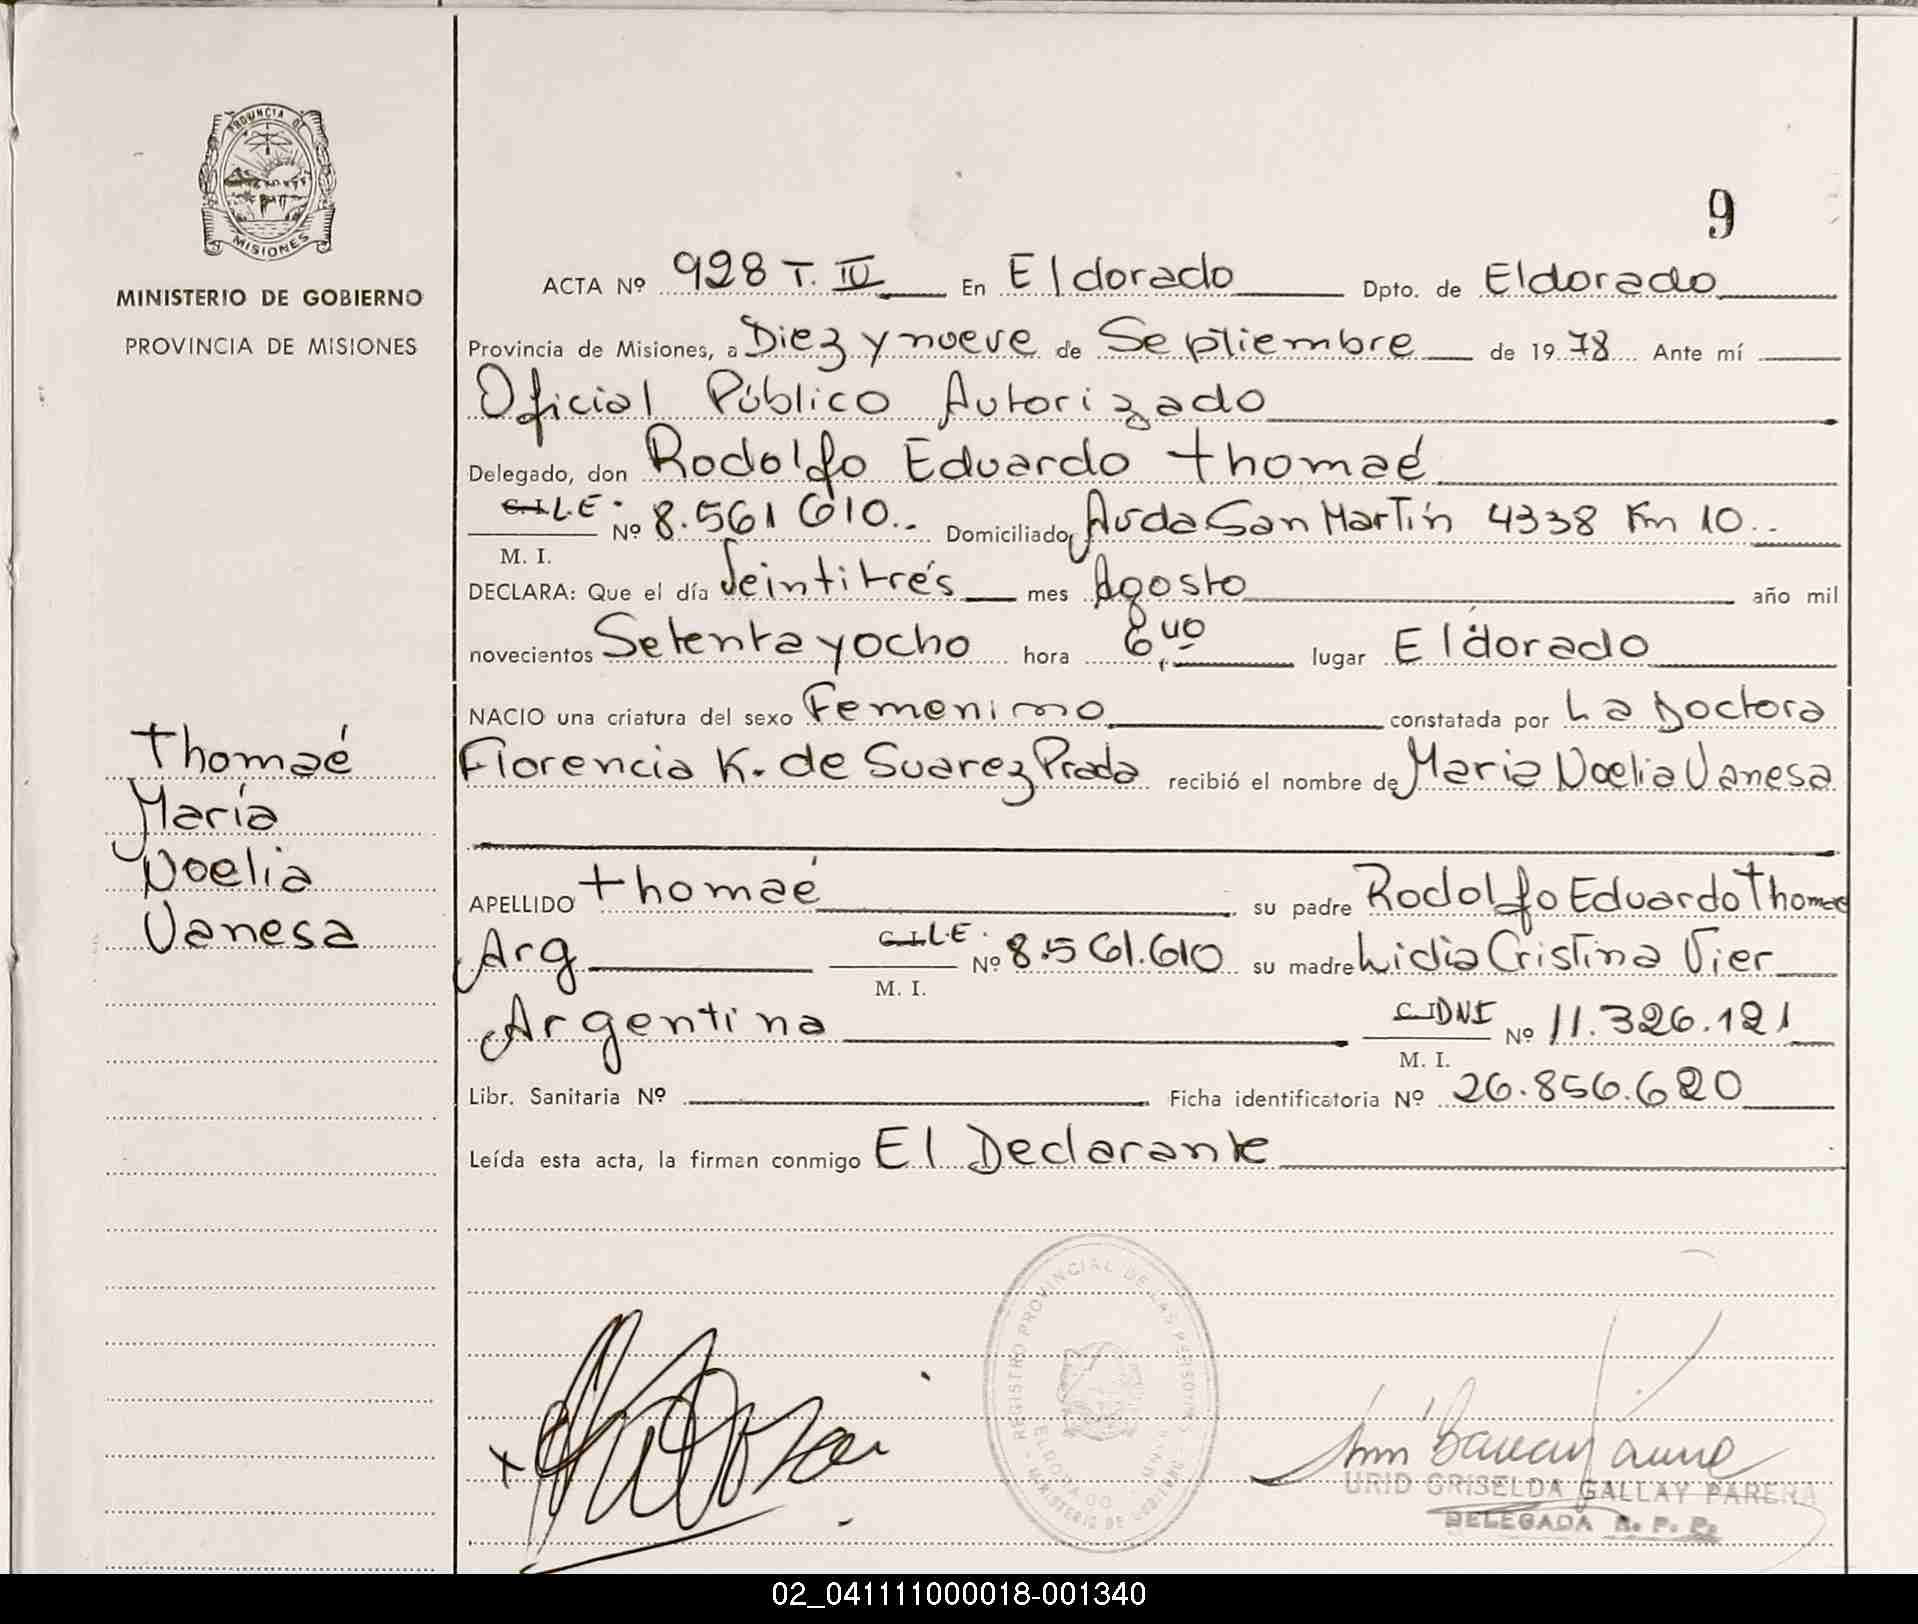 PROVINCIA DE
MISIONES
MINISTERIO DE GOBIERNO
PROVINCIA DE MISIONES
Thomaé
María
Noelia
Vanesa
9
ACTA Nº 928 T. IV En Eldorado Dpto. de Eldorado
Provincia de Misiones, a Diez y nueve de Septiembre de 1978 Ante mí
Oficial Público Autorizado
Delegado, don Rodolfo Eduardo Thomaé
C.I. L.E. Nº 8.561 610.. Domiciliado Avda San Martín 4338 Km 10..
M. I.
DECLARA: Que el día Veintitrés mes Agosto año mil
novecientos Setenta y ocho hora 6,40 lugar Eldorado
NACIO una criatura del sexo Femenino constatada por La Doctora
Florencia K. de Suarez Prada recibió el nombre de María Noelia Vanesa
APELLIDO Thomaé su padre Rodolfo Eduardo Thomaé
Arg C.I. L.E. Nº 8.561.610 su madre Lidia Cristina Vier
M. I.
Argentina C.I DNI Nº 11.326.121
M. I.
Libr. Sanitaria Nº Ficha identificatoria Nº 26.856.620
Leída esta acta, la firman conmigo El Declarante
REGISTRO PROVINCIAL DE LAS PERSONAS
ELDORADO
MINISTERIO DE GOBIERNO
URID GRISELDA GALLAY PARERA
DELEGADA R. P. P.
02_041111000018-001340